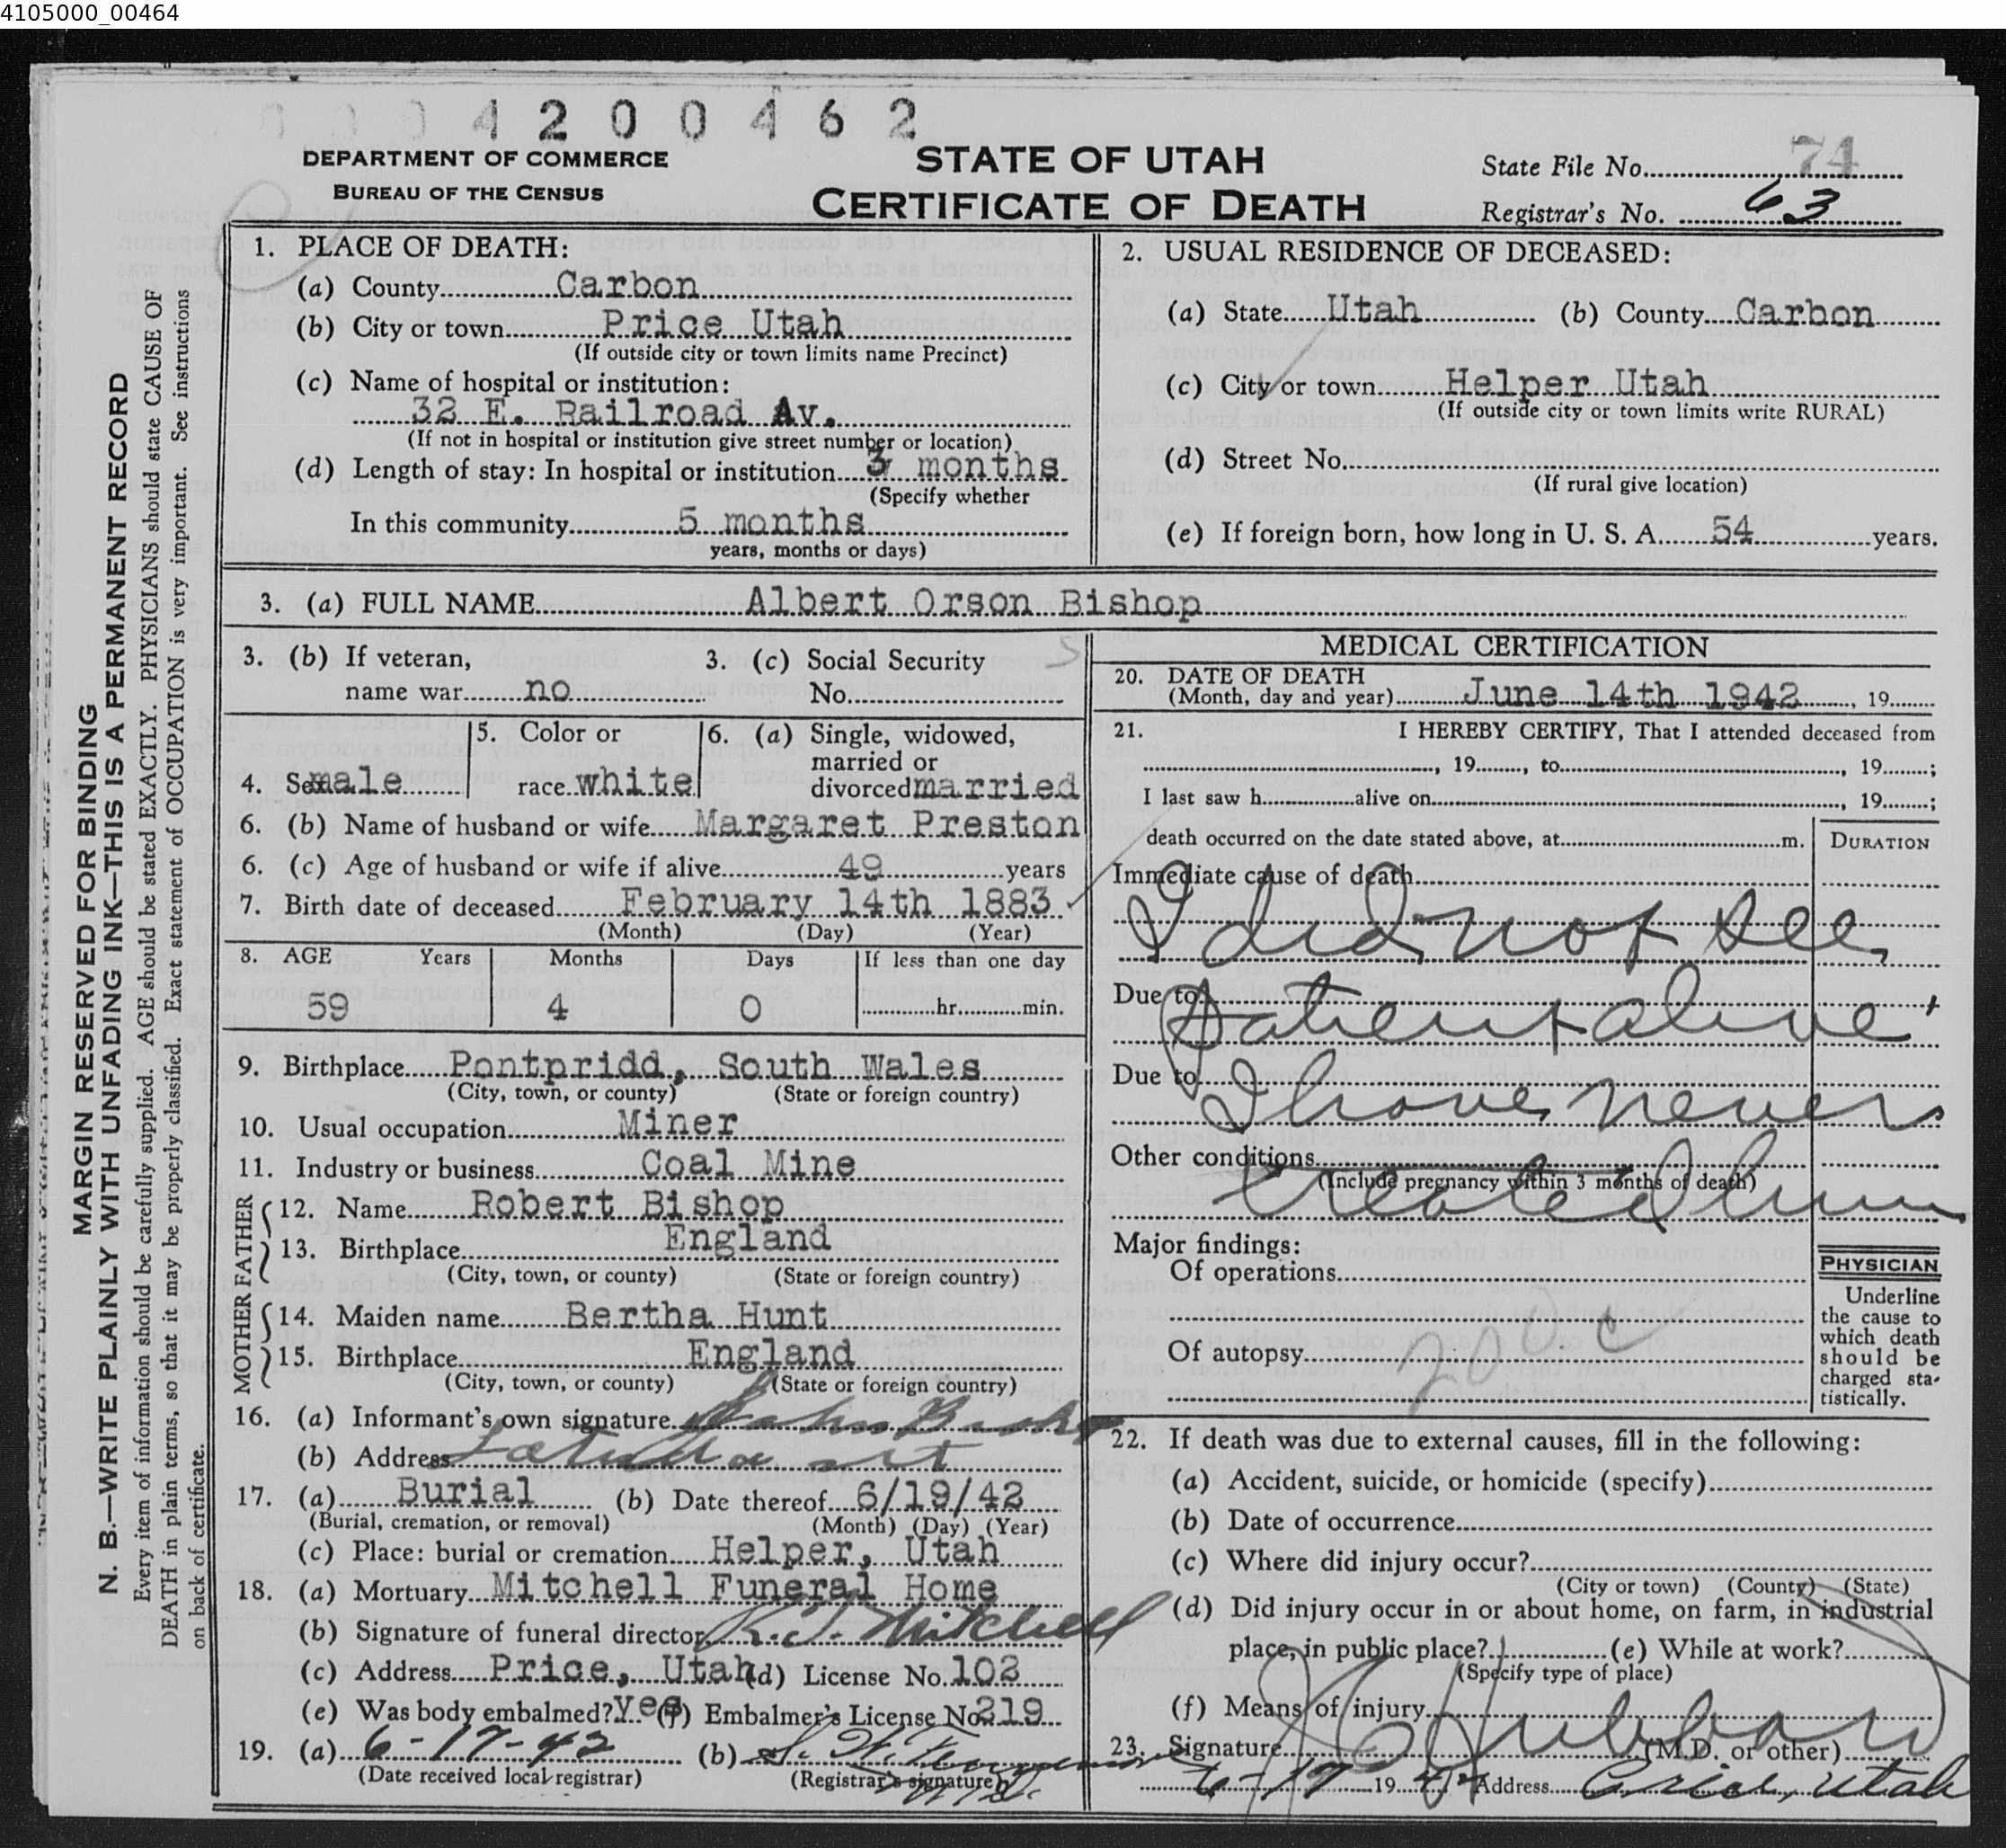 4105000_00464
4 2 0 0 4 6 2
DEPARTMENT OF COMMERCE
BUREAU OF THE CENSUS
STATE OF UTAH
CERTIFICATE OF DEATH
State File No. 74
Registrar's No. 63
MARGIN RESERVED FOR BINDING
N. B.—WRITE PLAINLY WITH UNFADING INK—THIS IS A PERMANENT RECORD
Every item of information should be carefully supplied. AGE should be stated EXACTLY. PHYSICIANS should state CAUSE OF
DEATH in plain terms, so that it may be properly classified. Exact statement of OCCUPATION is very important. See instructions
on back of certificate.
1. PLACE OF DEATH:
(a) County Carbon
(b) City or town Price Utah
(If outside city or town limits name Precinct)
(c) Name of hospital or institution:
32 E. Railroad Av.
(If not in hospital or institution give street number or location)
(d) Length of stay: In hospital or institution 3 months.
(Specify whether
In this community 5 months
years, months or days)
2. USUAL RESIDENCE OF DECEASED:
(a) State Utah (b) County Carbon
(c) City or town Helper Utah
(If outside city or town limits write RURAL)
(d) Street No.
(If rural give location)
(e) If foreign born, how long in U. S. A. 54 years.
3. (a) FULL NAME Albert Orson Bishop
3. (b) If veteran, 3. (c) Social Security
name war no No.
4. Sex male
5. Color or
race white
6. (a) Single, widowed,
married or
divorced married
6. (b) Name of husband or wife Margaret Preston
6. (c) Age of husband or wife if alive 49 years
7. Birth date of deceased February 14th 1883
(Month) (Day) (Year)
8. AGE Years Months Days If less than one day
59 4 0 hr. min.
9. Birthplace Pontpridd, South Wales
(City, town, or county) (State or foreign country)
10. Usual occupation Miner
11. Industry or business Coal Mine
FATHER
12. Name Robert Bishop
13. Birthplace England
(City, town, or county) (State or foreign country)
MOTHER
14. Maiden name Bertha Hunt
15. Birthplace England
(City, town, or county) (State or foreign country)
16. (a) Informant's own signature
(b) Address
17. (a) Burial (b) Date thereof 6/19/42
(Burial, cremation, or removal) (Month) (Day) (Year)
(c) Place: burial or cremation Helper, Utah
18. (a) Mortuary Mitchell Funeral Home
(b) Signature of funeral director Mitchell
(c) Address Price, Utah (d) License No. 102
(e) Was body embalmed? yes (f) Embalmer's License No. 219
19. (a) 6-17-42 (b)
(Date received local registrar) (Registrar's signature)
MEDICAL CERTIFICATION
20. DATE OF DEATH
(Month, day and year) June 14th 1942, 19
21. I HEREBY CERTIFY, That I attended deceased from
, 19 , to , 19 ;
I last saw h alive on , 19 ;
death occurred on the date stated above, at m.
DURATION
Immediate cause of death
I did not see
Due to
Patient alive,
Due to
I have never
Other conditions
(Include pregnancy within 3 months of death)
treated him
Major findings:
Of operations
Of autopsy
200.c
PHYSICIAN
Underline
the cause to
which death
should be
charged sta-
tistically.
22. If death was due to external causes, fill in the following:
(a) Accident, suicide, or homicide (specify)
(b) Date of occurrence
(c) Where did injury occur?
(City or town) (County) (State)
(d) Did injury occur in or about home, on farm, in industrial
place, in public place? (e) While at work?
(Specify type of place)
(f) Means of injury
23. Signature Hubbard (M.D. or other)
6-17 1942 Address Price, Utah